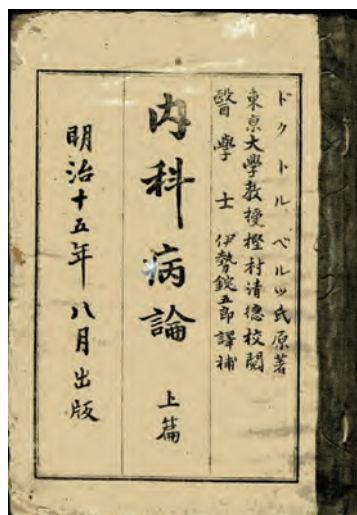 ドクトル、ベルツ氏原著
東京大學教授樫村清德校閲
醫學士 伊勢錠五郎譯補
内科病論 上篇
明治十五年八月出版